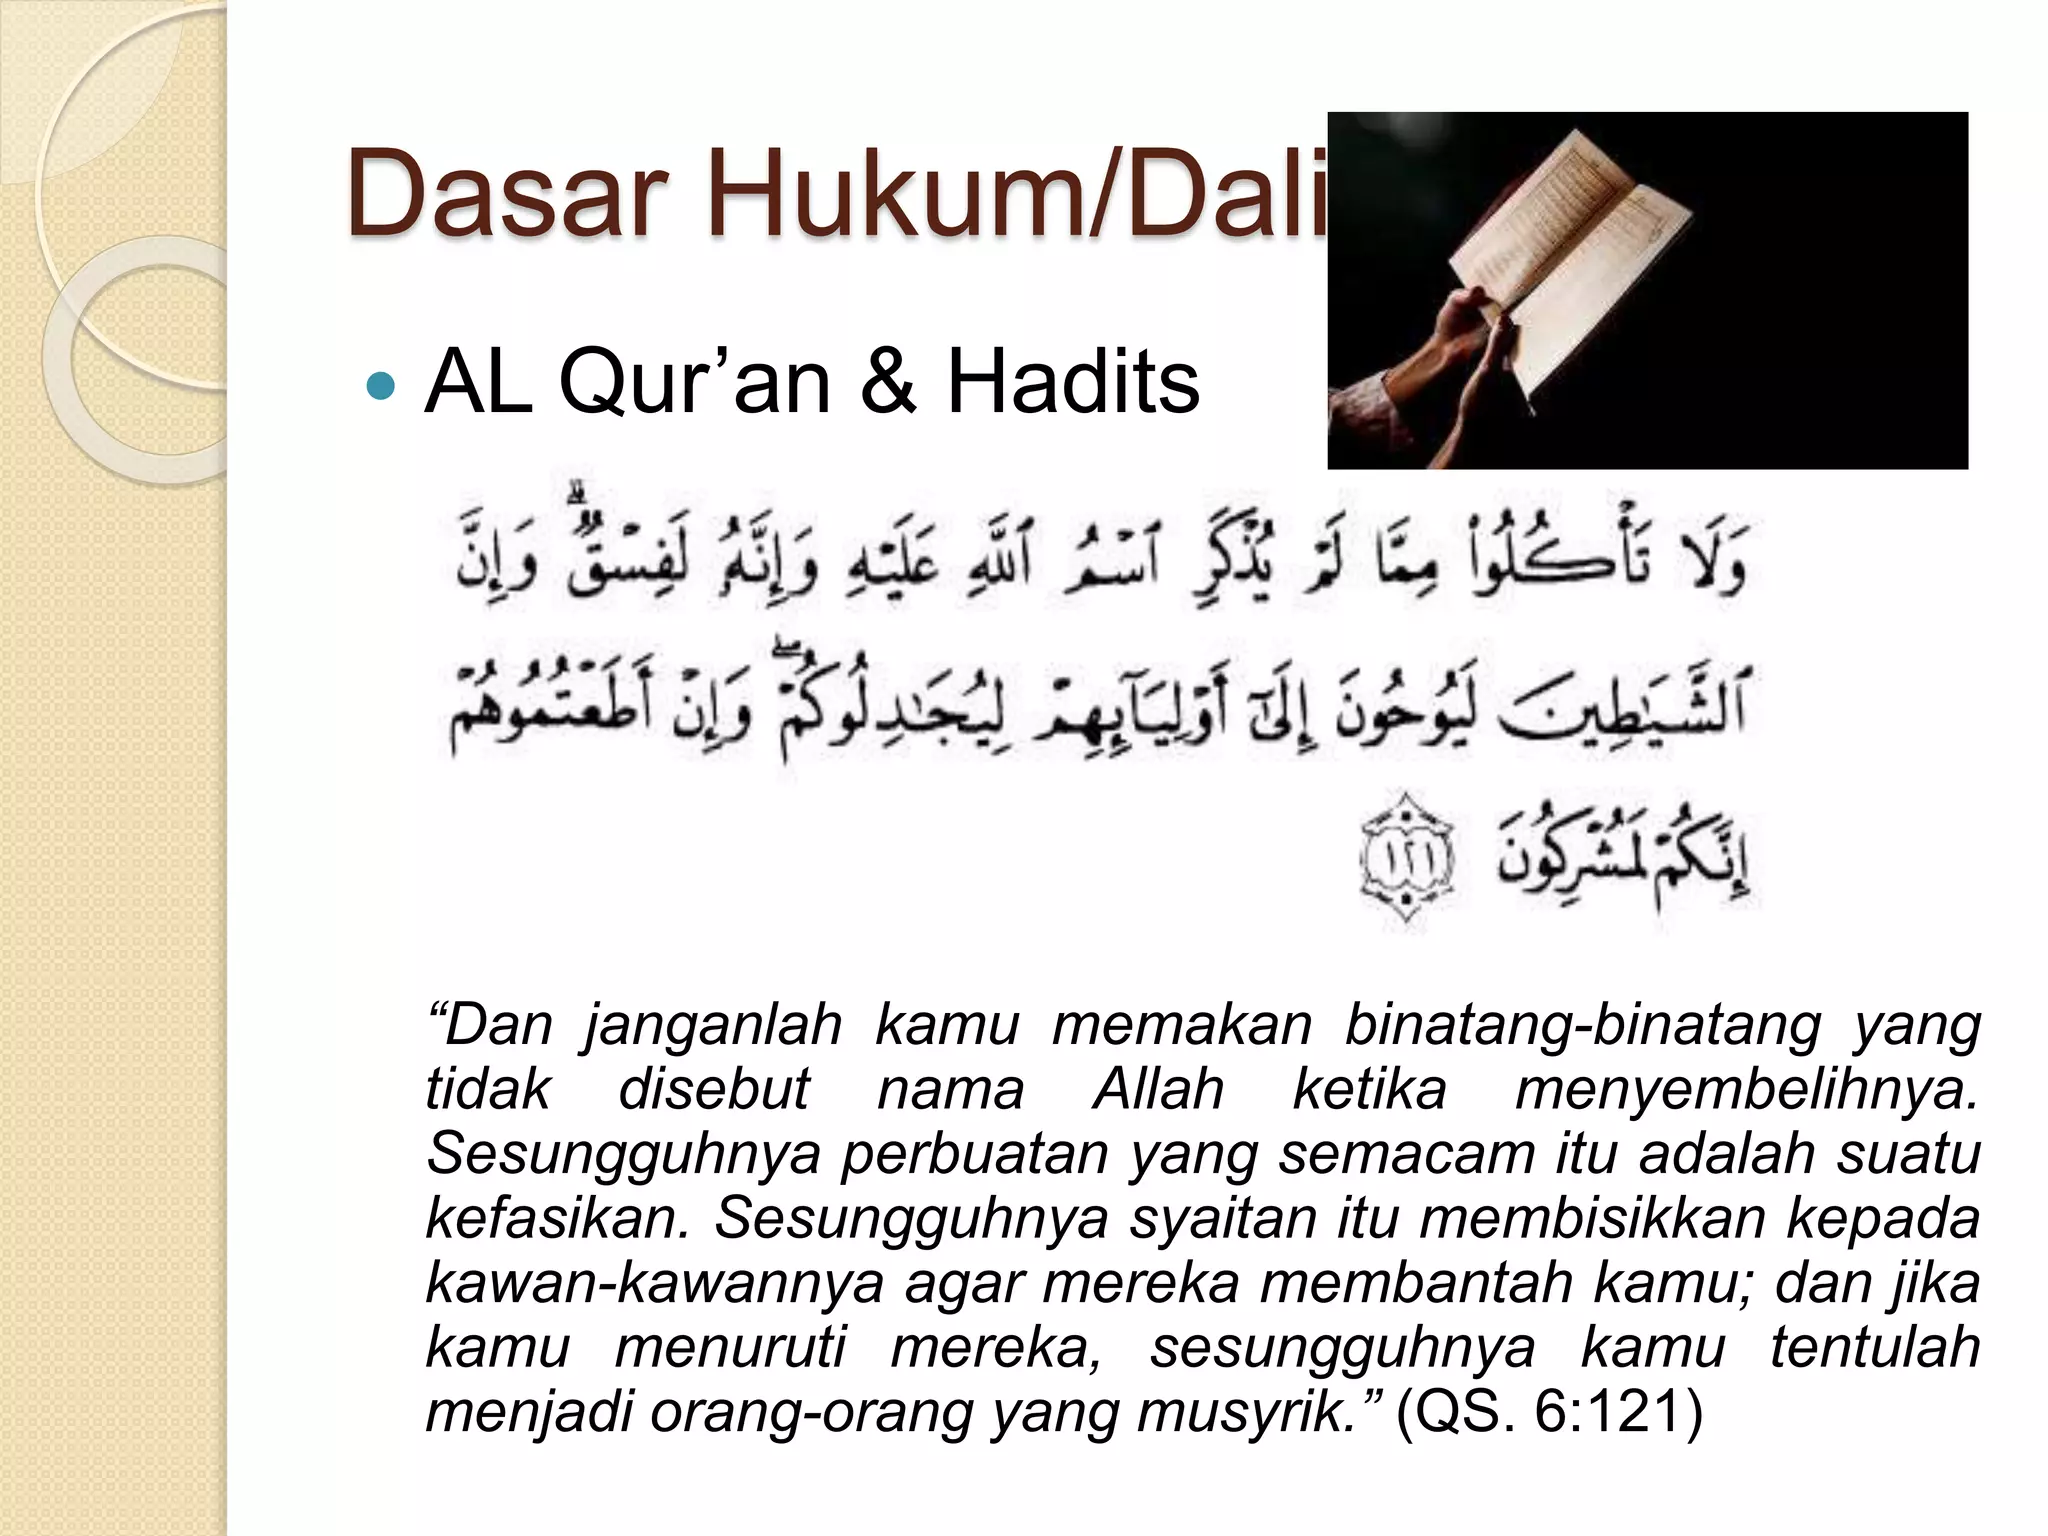 Dasar Hukum/Dali
AL Qur’an & Hadits
وَلَا تَأْكُلُوا۟ مِمَّا لَمْ يُذْكَرِ ٱسْمُ ٱللَّهِ عَلَيْهِ وَإِنَّهُۥ لَفِسْقٌ ۗ وَإِنَّ
ٱلشَّيَـٰطِينَ لَيُوحُونَ إِلَىٰٓ أَوْلِيَآئِهِمْ لِيُجَـٰدِلُوكُمْ ۖ وَإِنْ أَطَعْتُمُوهُمْ
إِنَّكُمْ لَمُشْرِكُونَ ١٢١
“Dan janganlah kamu memakan binatang-binatang yang
tidak disebut nama Allah ketika menyembelihnya.
Sesungguhnya perbuatan yang semacam itu adalah suatu
kefasikan. Sesungguhnya syaitan itu membisikkan kepada
kawan-kawannya agar mereka membantah kamu; dan jika
kamu menuruti mereka, sesungguhnya kamu tentulah
menjadi orang-orang yang musyrik.” (QS. 6:121)